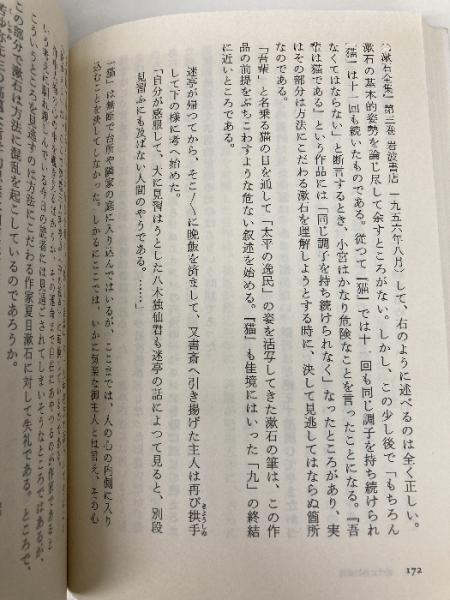 『漱石全集』第三巻 岩波書店 一九五六年八月）して、右のように述べるのは全く正しい。
漱石の基本的姿勢を論じ尽して余すところがない。しかし、この少し後で「もちろん
『猫』は十一回も続いたものである。従つて『猫』では十一回も同じ調子を持ち続けられ
なくてはならない」と断言するとき、小宮はかなり危険なことを言ったことになる。『吾
輩は猫である』という作品には「同じ調子を持ち続けられなく」なったところがあり、実
はその部分は方法にこだわる漱石を理解しようとする時に、決して見逃してはならぬ箇所
なのである。
「吾輩」と名乗る猫の目を通して「太平の逸民」の姿を活写してきた漱石の筆は、この作
品の前提をぶちこわすような危ない叙述を始める。『猫』も佳境にはいった「九」の終結
に近いところである。
迷亭が帰つてから、そこ／＼に晩飯を済まして、又書斎へ引き揚げた主人は再び拱手
きょうしゅ
して下の様に考へ始めた。
「自分が感服して、大に見習はうとした八木独仙君も迷亭の話によつて見ると、別段
見習ふにも及ばない人間のやうである。……」
「猫」は無断で台所や隣家の庭に入り込んではいるが、ここまでは、人の心の内側に入り
込むことを決してしなかった。しかるにここでは、いかに
こういうところを見逃すのは方法にこだわる作家夏目漱石に対して失礼である。ところで、
この部分で漱石は方法上の混乱を起こしているのであろうか。
172